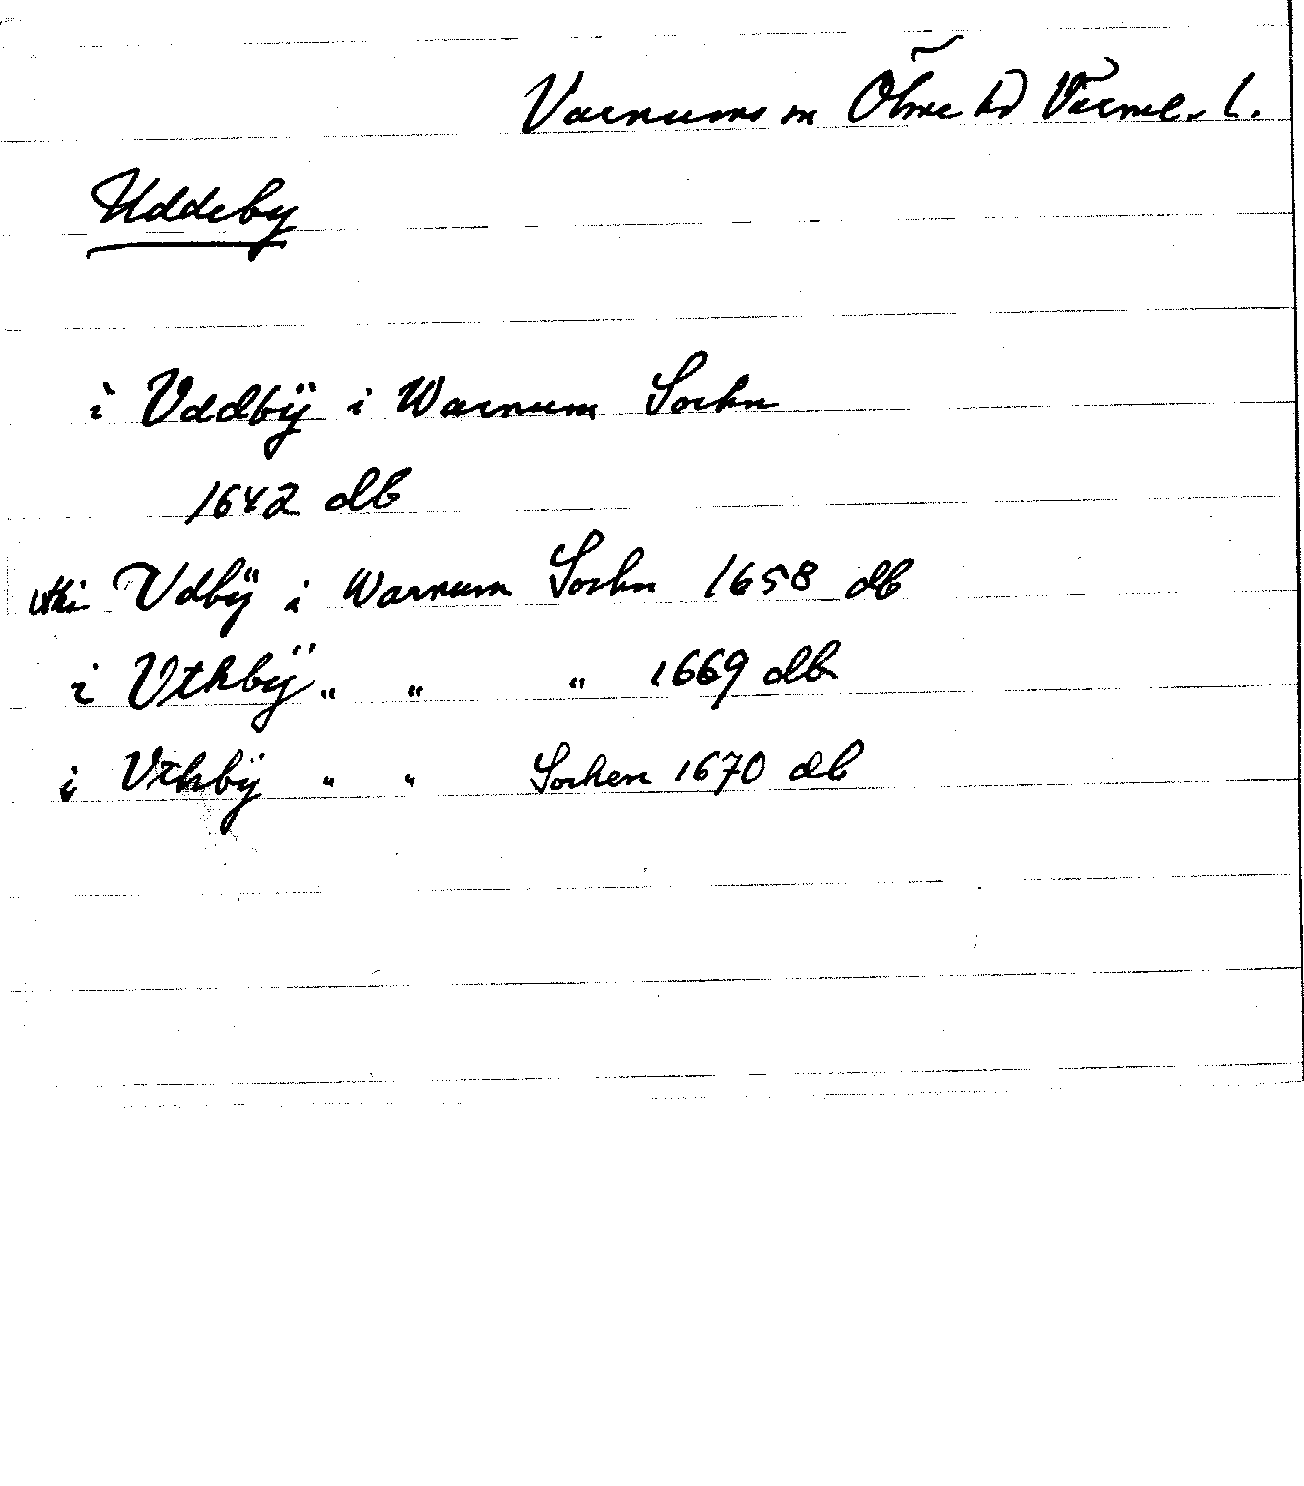 Varnums sn Ölme hd Värml. l.
Uddeby
i Vddbÿ i Warnum Sochn
1642 db
uthi Vdbÿ i Warnum Sochn 1658 db
i Vthbÿ " " " 1669 db
i Vthbÿ " " Sochen 1670 db